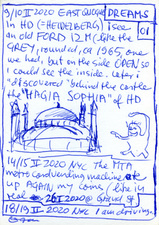 9/10 II 2020 EAST QUOGUE DREAMS
01
in HD (=HEIDELBERG) I see
an old FORD 12M (like the
GREY, rounded, ca 1965, one
we had, but on the side OPEN so
I could see the inside. Later I
"discovered" behind the castle
the "HAGIA SOPHIA" of HD
14/15 II 2020 NYC The MTA
metrocard vending machine ate
up AGAIN my coins, (like in
real 26 I 2020 @ Grand St)
18/19 II 2020 NYC I am driving